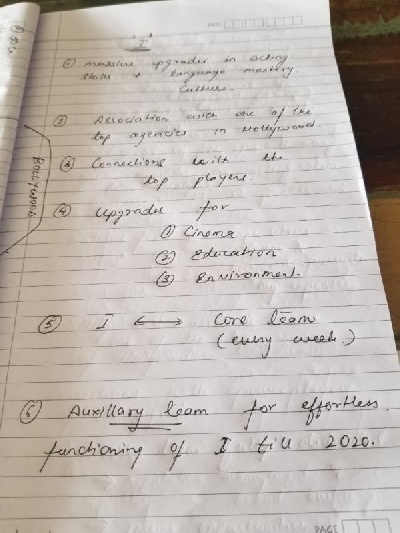 "I"
① massive upgrades in acting
skills + language mastery
Culture.
② Association with one of the
top agencies in Hollywood.
③ Connections with the
top players.
④ Upgrades for
① Cinema
② Education
③ Environment.
⑤ I ⟷ Core Team
(every week)
⑥ Auxillary team for effortless
functioning of I till 2020.
BOLLYWOOD
PAGE